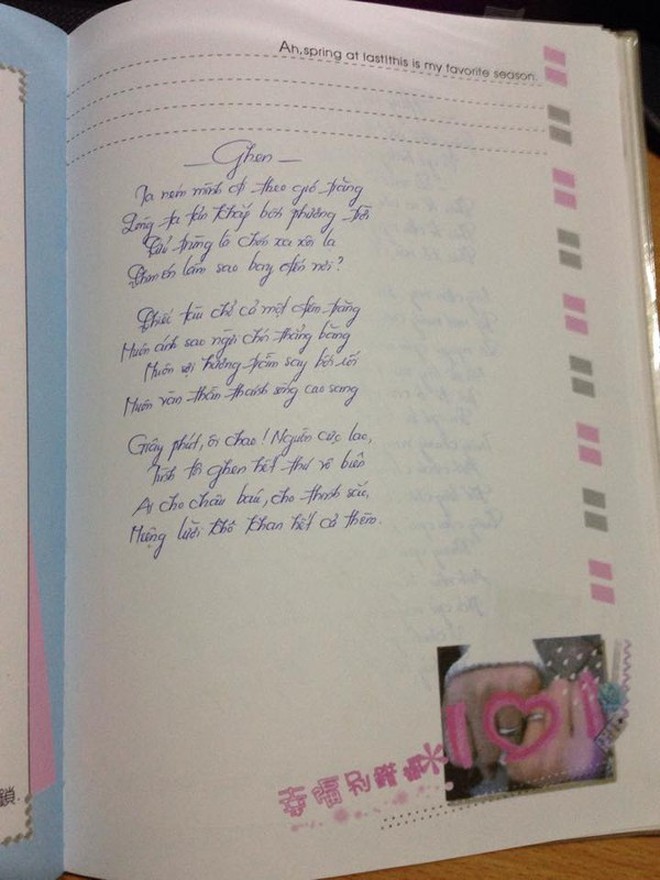 Ah,spring at last!this is my favorite season.
Ghen
Ta ném mình đi theo gió trăng
Lòng ta tản khắp bốn phương trời
Cửu trùng là chốn xa xôi lạ
Chim én làm sao bay đến nơi?
Chiếc tàu chở cả một đêm trăng
Muôn ánh sao ngời thẳng băng
Muôn sợi hương trầm say bối rối
Muôn vàn thần thánh sống cao sang
Giây phút, ôi chao! Nguồn cực lạc,
Tình tôi ghen hết thú vô biên
Ai cho châu báu, cho thinh sắc,
Miệng lưỡi khô khan hết cả thèm.
鎖.